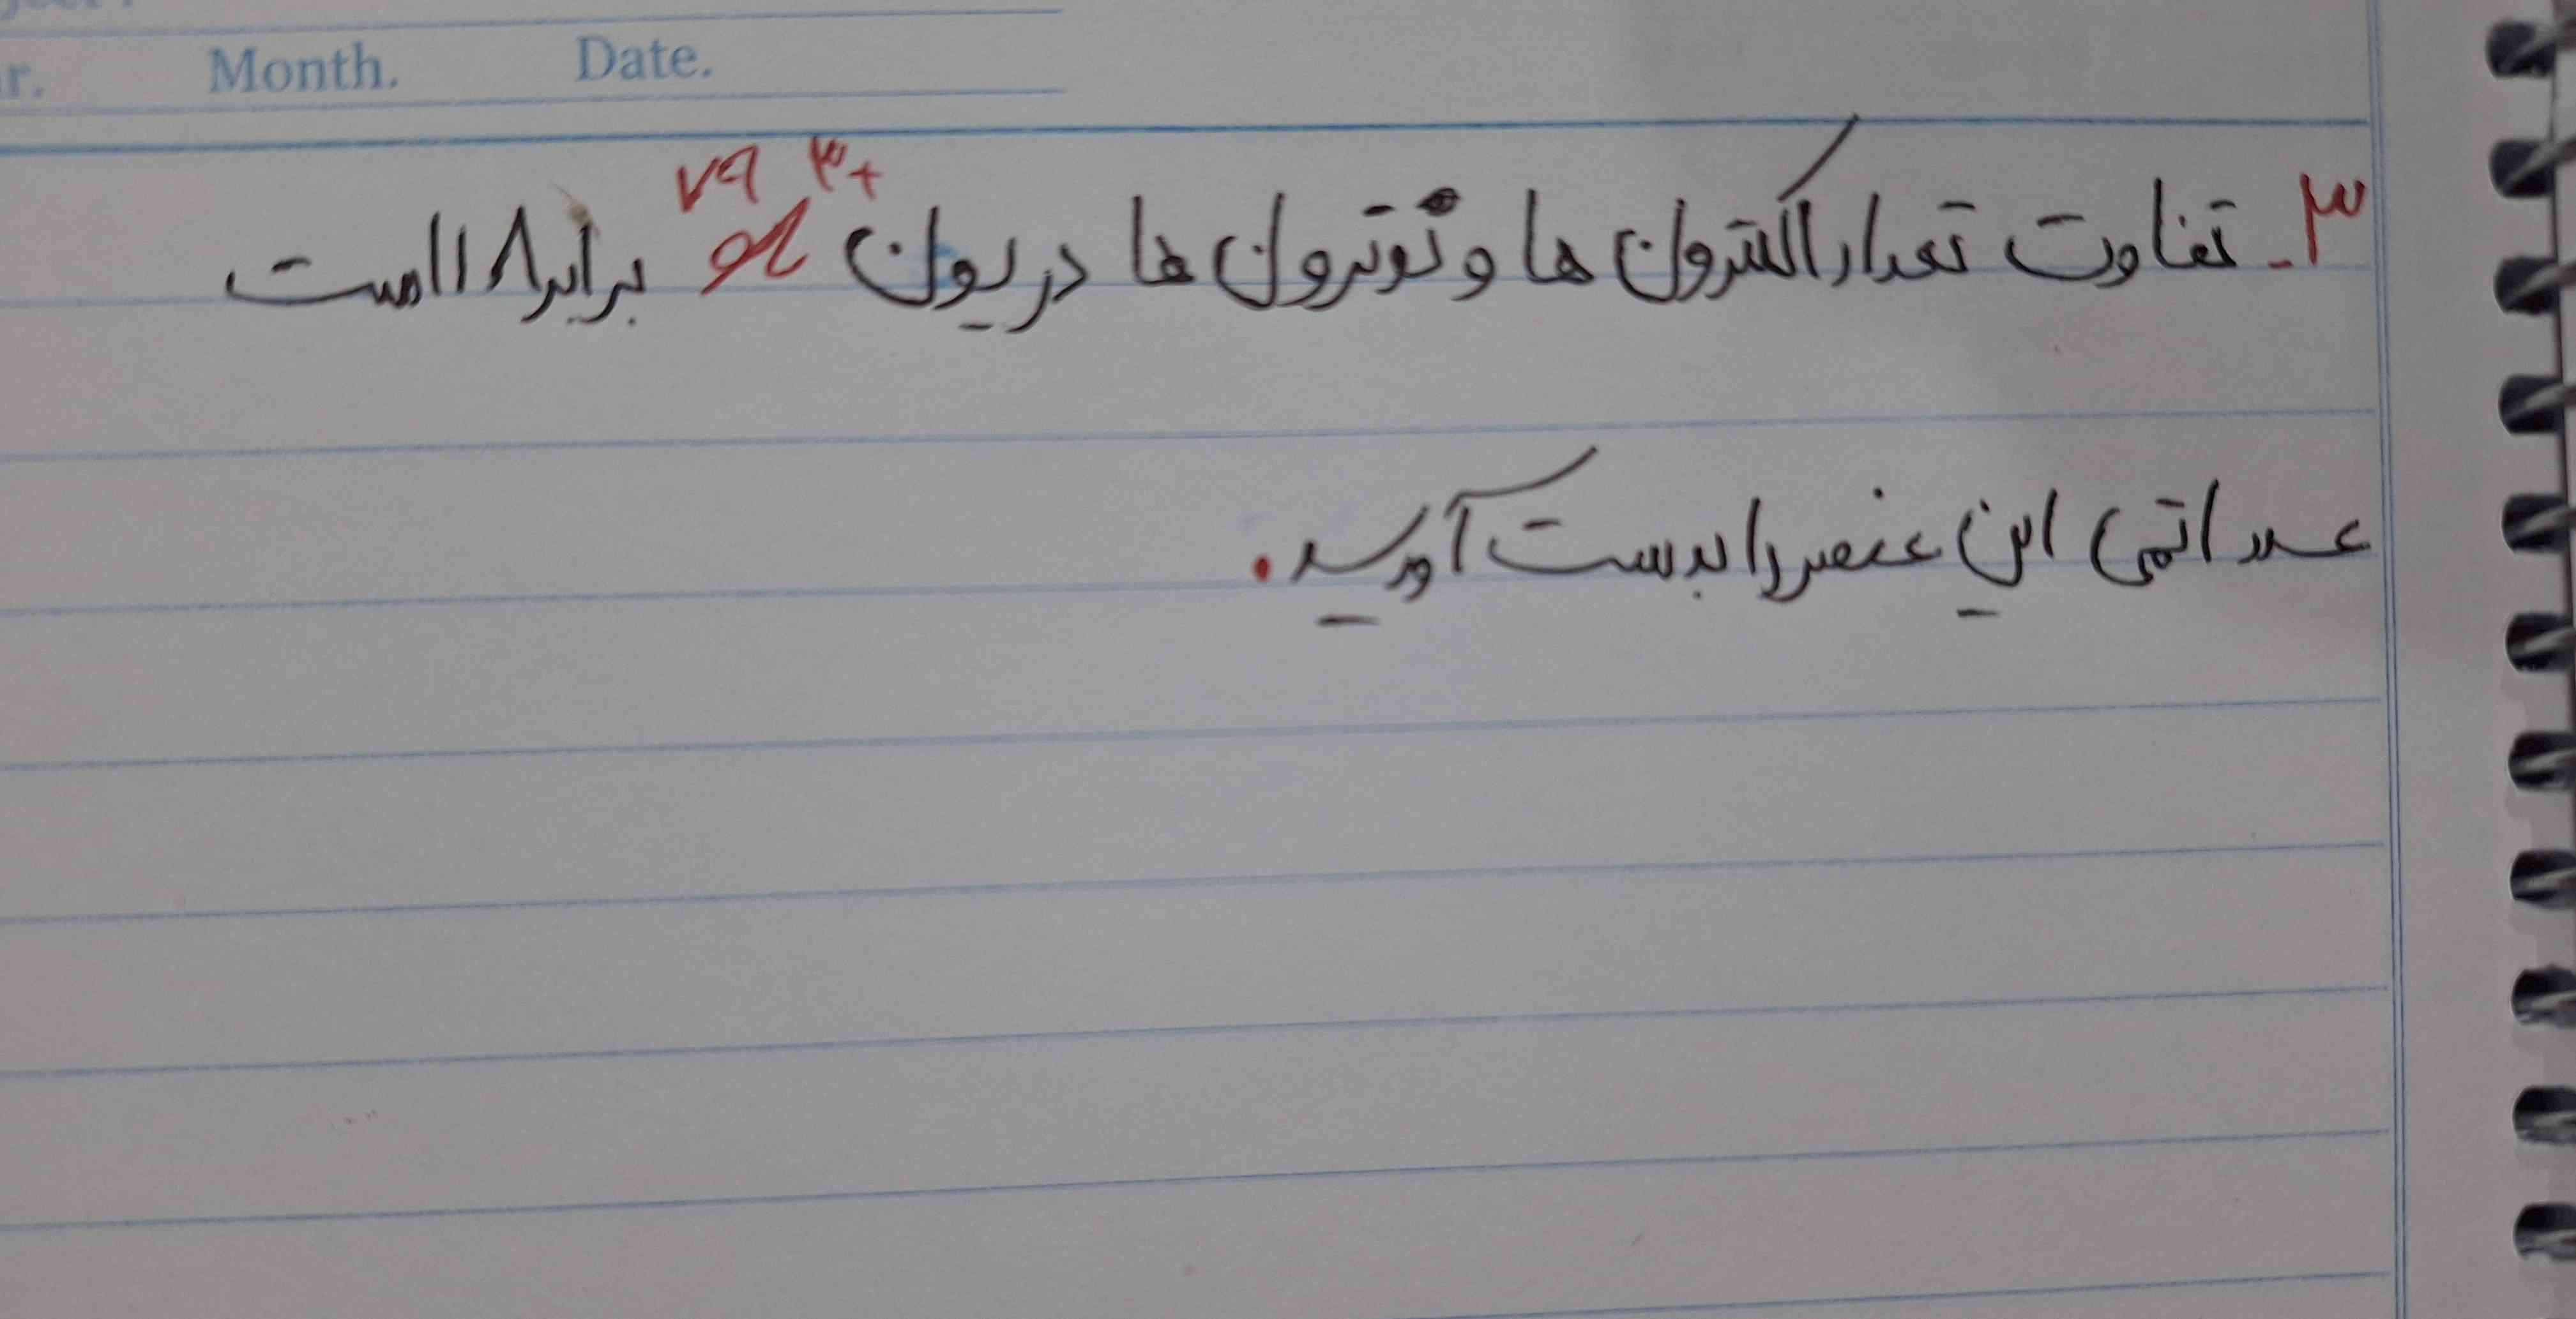 Month. Date.
۳ـ تفاوت تعداد الکترون ها و نوترون ها در یون ⁷⁹X³⁺ برابر ۱۸ است
عدد اتمی این عنصر را بدست آورید.